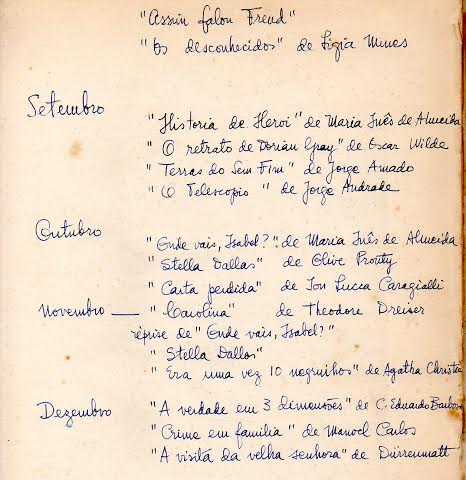 "Assim falou Freud"
"Os desconhecidos" de Ligia Nunes
Setembro
"Historia de Heroi" de Maria Inês de Almeida
"O retrato de Dorian Gray" de Oscar Wilde
"Terras do Sem Fim" de Jorge Amado
"O Telescopio" de Jorge Andrade
Outubro
"Onde vais, Isabel?" de Maria Inês de Almeida
"Stella Dallas" de Olive Prouty
"Carta perdida" de Ion Lucca Caragialli
Novembro — "Carolina" de Theodore Dreiser
réprise de "Onde vais, Isabel?"
"Stella Dallas"
"Era uma vez 10 negrinhos" de Agatha Christie
Dezembro
"A verdade em 3 dimensões" de C. Eduardo Barbosa
"Crime em familia" de Manoel Carlos
"A visita da velha senhora" de Dürrenmatt